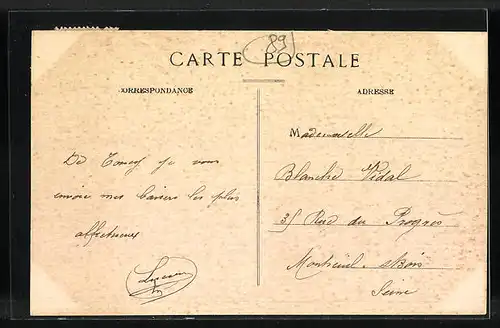 89
CARTE POSTALE
CORRESPONDANCE
ADRESSE
Mademoiselle
De Toucy je vous
Blanche Vidal
envoie mes baisers les plus
35 Rue du Progrès
affectueux
Montreuil s/Bois
Lucien
Seine